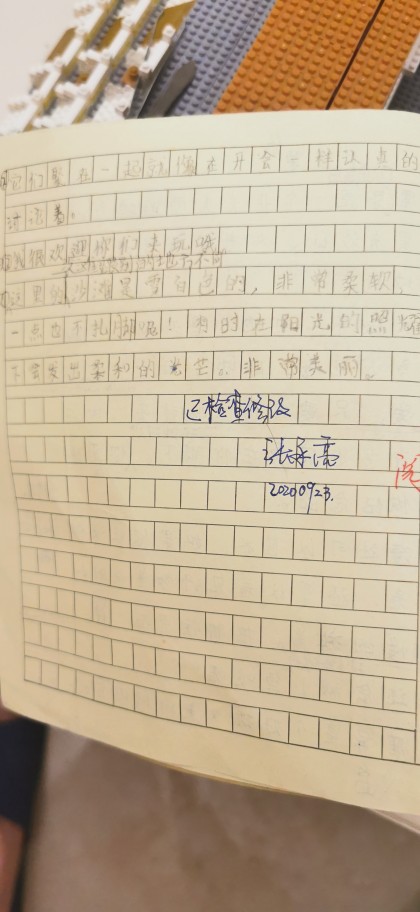 它们聚在一起就像在开会一样认真的
讨论着。
我很欢迎你们来玩哦
这里的沙滩是雪白色的，非常柔软，
一点也不扎脚呢！有时在阳光的照耀
下会发出柔和的光芒。非常美丽。
已检查修改
20200923.